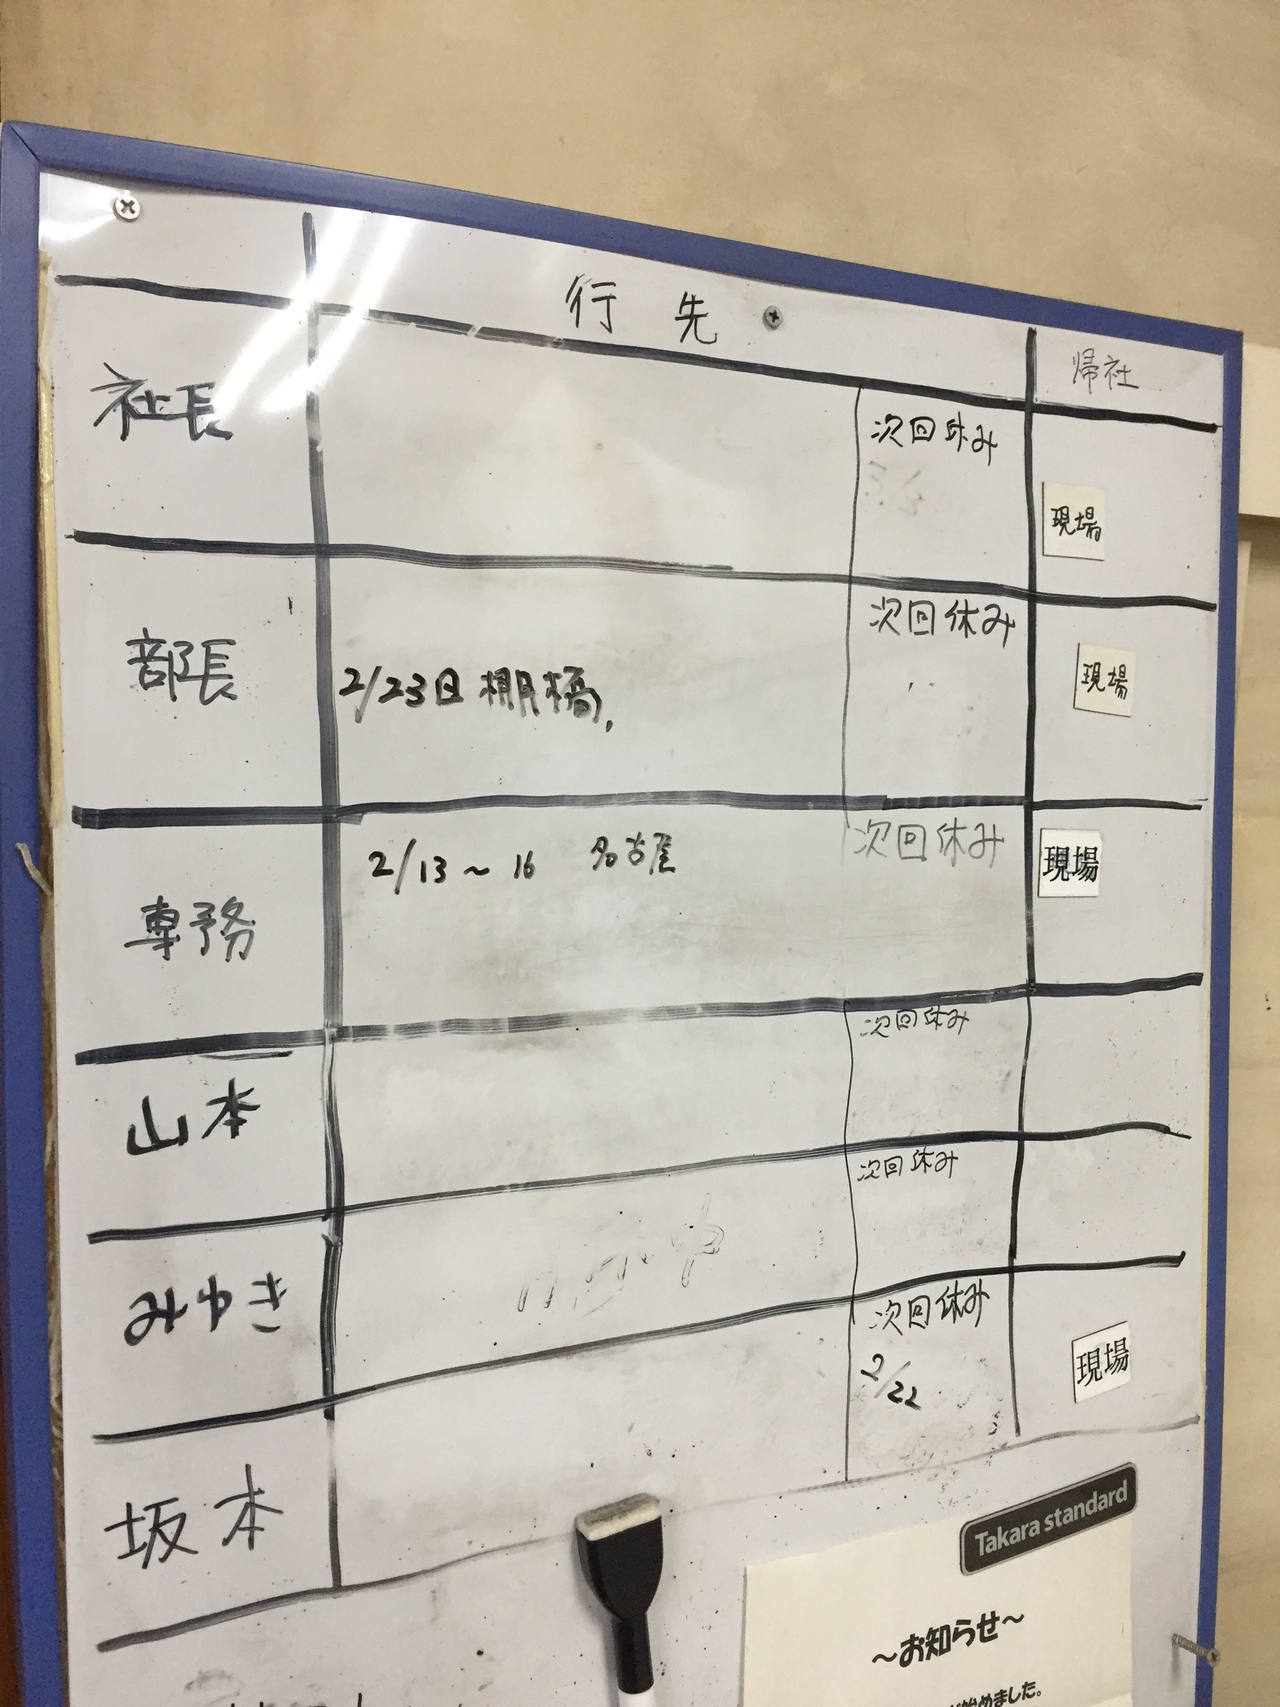 行先
帰社
社長
次回休み
現場
部長
2/23日 棚橋
次回休み
現場
専務
2/13～16 名古屋
次回休み
現場
山本
次回休み
みゆき
次回休み
坂本
次回休み
2/22
現場
Takara standard
～お知らせ～
始めました。